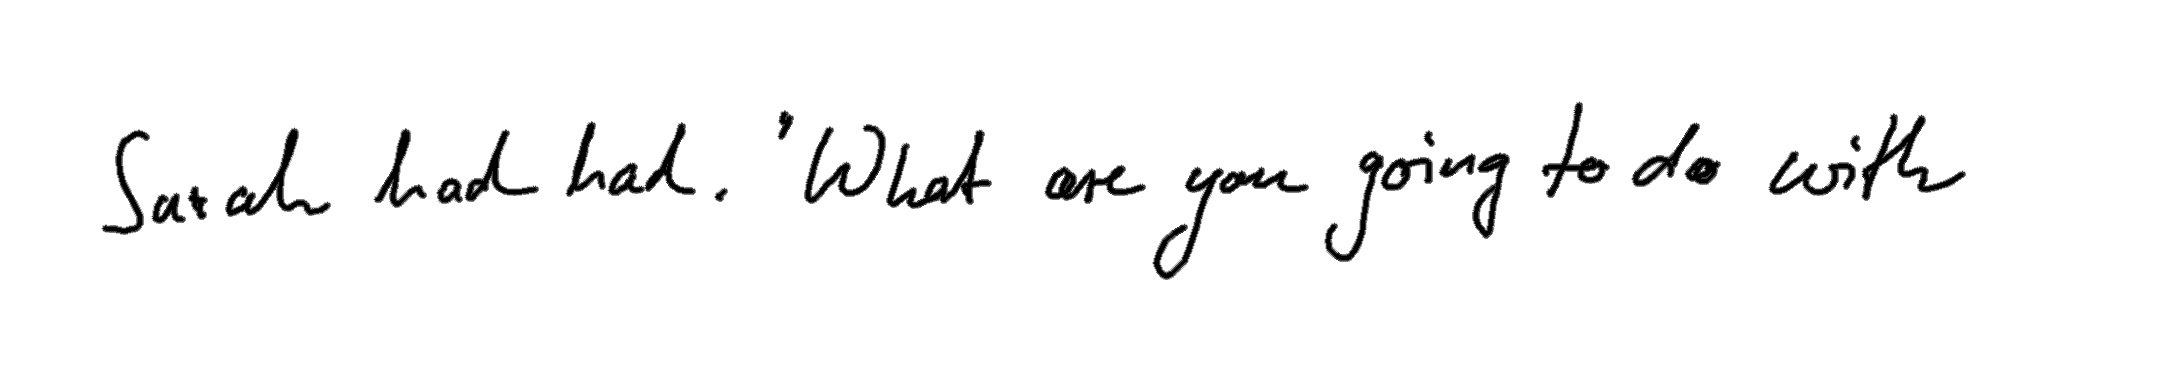 Sarah had had. 'What are you going to do with